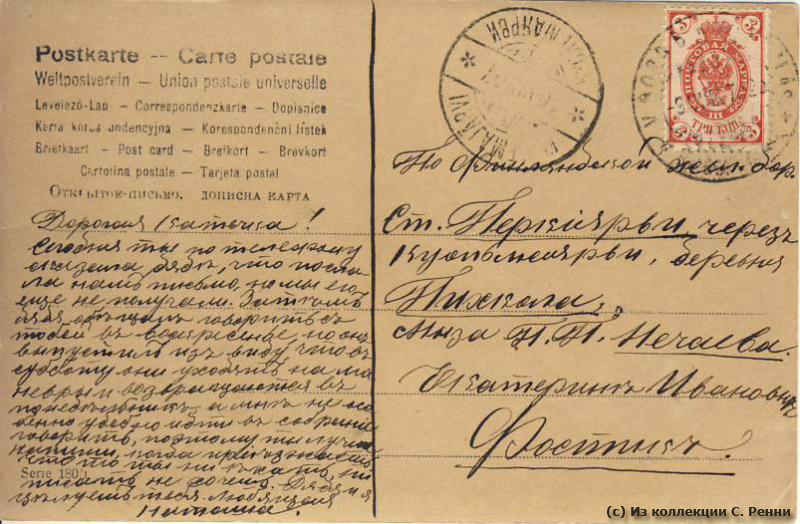 Postkarte — Carte postale
Weltpostverein — Union postale universelle
Levelező-Lap — Correspondenzkarte — Dopisnice
Karta korespondencyjna — Korespondenční lístek
Briefkaart — Post card — Brefkort — Brevkort
Cartolina postale — Tarjeta postal
Открытое-письмо. дописна карта
Дорогая Катичка!
Сегодня ты по телефону
сказала дядѣ, что посла-
ла намъ письмо, но мы его
еще не получали. Затѣмъ
дядя обѣщалъ говорить съ
тобой въ воскресенье, но онъ
выпустилъ изъ виду, что въ
субботу они уходятъ на ма
невры и возвращаются въ
понедѣльникъ, а мнѣ не осо
бенно удобно идти въ собранie
говорить, поэтому ты лучше
напиши, когда
что то ты ни ѣхать, ни
писать не хочешь. Дядя и я
цѣлуемъ тебя. Любящая
Наташа.
Serie 180/1
ПОЧТОВАЯ МАРКА
III
ТРИ КОП.
3
3
3
3
По Финляндской жел. дор.
Ст. Перкіярви черезъ
деревня
Пихкала,
Мыза Н. П. Нечаева.
Екатеринѣ Ивановнѣ
Фостикъ.
(c) Из коллекции С. Ренни